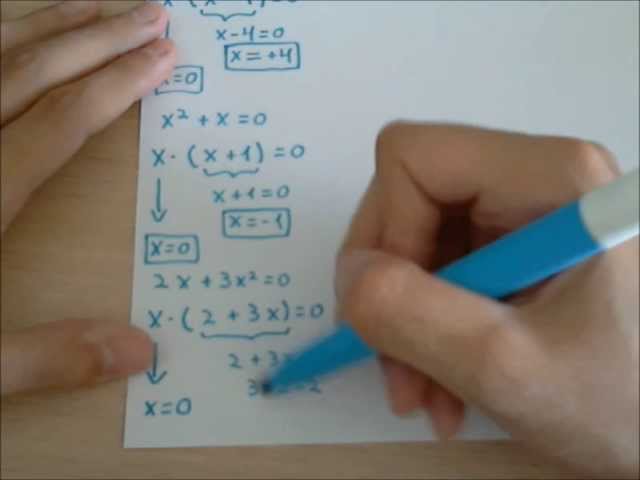 x-4=0
x=+4
x=0
x² + x = 0
x · (x+1) = 0
x+1=0
x=-1
x=0
2x + 3x² = 0
x · (2 + 3x) = 0
2 + 3x
x=0